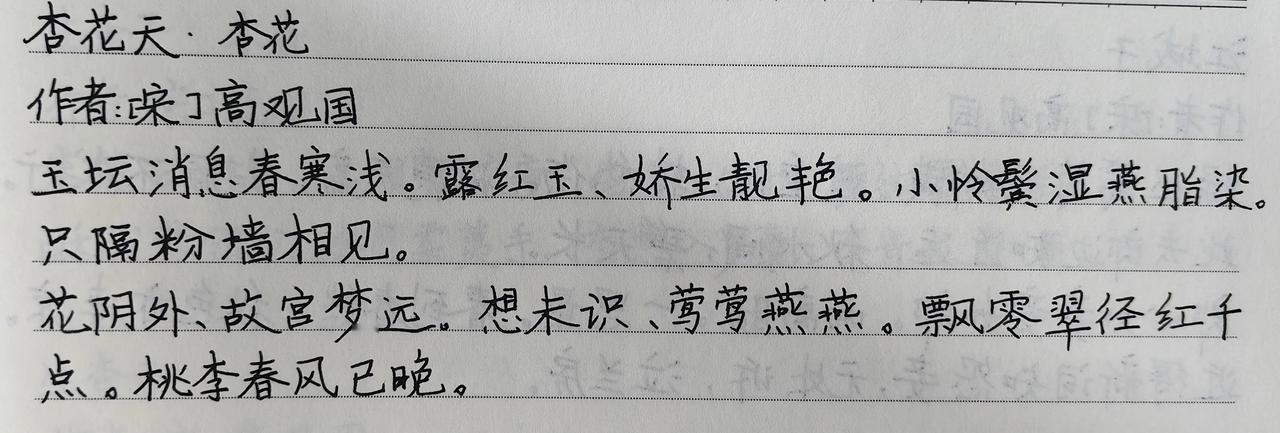 杏花天·杏花
作者:[宋]高观国
玉坛消息春寒浅。露红玉、娇生靓艳。小怜鬓湿燕脂染。
只隔粉墙相见。
花阴外、故宫梦远。想未识、莺莺燕燕。飘零翠径红千
点。桃李春风已晚。